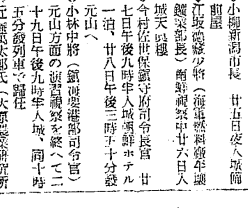 小柳新潟市長　廿五日夜入城備
前屋
江坂德藏少將（海軍燃料廠平壤
鑛業部長）南鮮視察中廿六日入
城天眞樓
今村佐世保鎭守府司令長官　廿
七日午後九時半入城朝鮮ホテル
一泊、廿八日午後三時五十分發
元山へ
小林中將（鎭海要港部司令官）
元山方面の演習視察を終へて二
十九日午後九時半入城、同十時
五分發列車で歸任